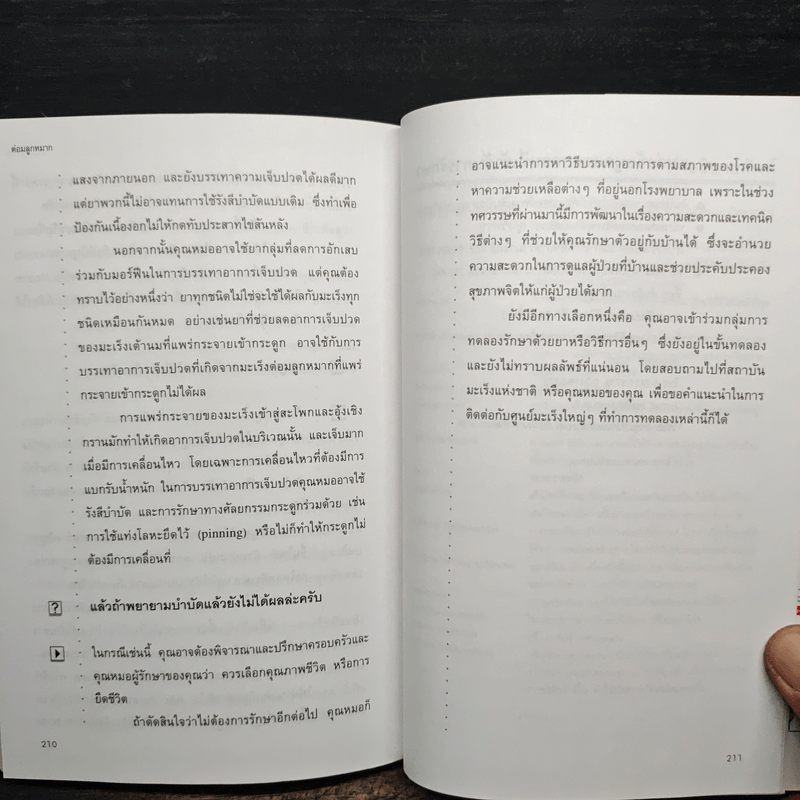 ต่อมลูกหมาก
แสงจากภายนอก และยังบรรเทาความเจ็บปวดได้ผลดีมาก
แต่ยาพวกนี้ไม่อาจแทนการใช้รังสีบำบัดแบบเดิม ซึ่งทำเพื่อ
ป้องกันเนื้องอกไม่ให้กดทับประสาทไขสันหลัง
นอกจากนั้นคุณหมออาจใช้ยากลุ่มที่ลดการอักเสบ
ร่วมกับมอร์ฟีนในการบรรเทาอาการเจ็บปวด แต่คุณต้อง
ทราบไว้อย่างหนึ่งว่า ยาทุกชนิดไม่ใช่จะใช้ได้ผลกับมะเร็งทุก
ชนิดเหมือนกันหมด อย่างเช่นยาที่ช่วยลดอาการเจ็บปวด
ของมะเร็งเต้านมที่แพร่กระจายเข้ากระดูก อาจใช้กับการ
บรรเทาอาการเจ็บปวดที่เกิดจากมะเร็งต่อมลูกหมากที่แพร่
กระจายเข้ากระดูกไม่ได้ผล
การแพร่กระจายของมะเร็งเข้าสู่สะโพกและอุ้งเชิง
กรานมักทำให้เกิดอาการเจ็บปวดในบริเวณนั้น และเจ็บมาก
เมื่อมีการเคลื่อนไหว โดยเฉพาะการเคลื่อนไหวที่ต้องมีการ
แบกรับน้ำหนัก ในการบรรเทาอาการเจ็บปวดคุณหมออาจใช้
รังสีบำบัด และการรักษาทางศัลยกรรมกระดูกร่วมด้วย เช่น
การใช้แท่งโลหะยึดไว้ (pinning) หรือไม่ก็ทำให้กระดูกไม่
ต้องมีการเคลื่อนที่
? แล้วถ้าพยายามบำบัดแล้วยังไม่ได้ผลล่ะครับ
ในกรณีเช่นนี้ คุณอาจต้องพิจารณาและปรึกษาครอบครัวและ
คุณหมอผู้รักษาของคุณว่า ควรเลือกคุณภาพชีวิต หรือการ
ยืดชีวิต
ถ้าตัดสินใจว่าไม่ต้องการรักษาอีกต่อไป คุณหมอก็
210
อาจแนะนำการหาวิธีบรรเทาอาการตามสภาพของโรคและ
หาความช่วยเหลือต่างๆ ที่อยู่นอกโรงพยาบาล เพราะในช่วง
ทศวรรษที่ผ่านมานี้มีการพัฒนาในเรื่องความสะดวกและเทคนิค
วิธีต่างๆ ที่ช่วยให้คุณรักษาตัวอยู่กับบ้านได้ ซึ่งจะอำนวย
ความสะดวกในการดูแลผู้ป่วยที่บ้านและช่วยประคับประคอง
สุขภาพจิตให้แก่ผู้ป่วยได้มาก
ยังมีอีกทางเลือกหนึ่งคือ คุณอาจเข้าร่วมกลุ่มการ
ทดลองรักษาด้วยยาหรือวิธีการอื่นๆ ซึ่งยังอยู่ในขั้นทดลอง
และยังไม่ทราบผลลัพธ์ที่แน่นอน โดยสอบถามไปที่สถาบัน
มะเร็งแห่งชาติ หรือคุณหมอของคุณ เพื่อขอคำแนะนำในการ
ติดต่อกับศูนย์มะเร็งใหญ่ๆ ที่ทำการทดลองเหล่านี้ก็ได้
211